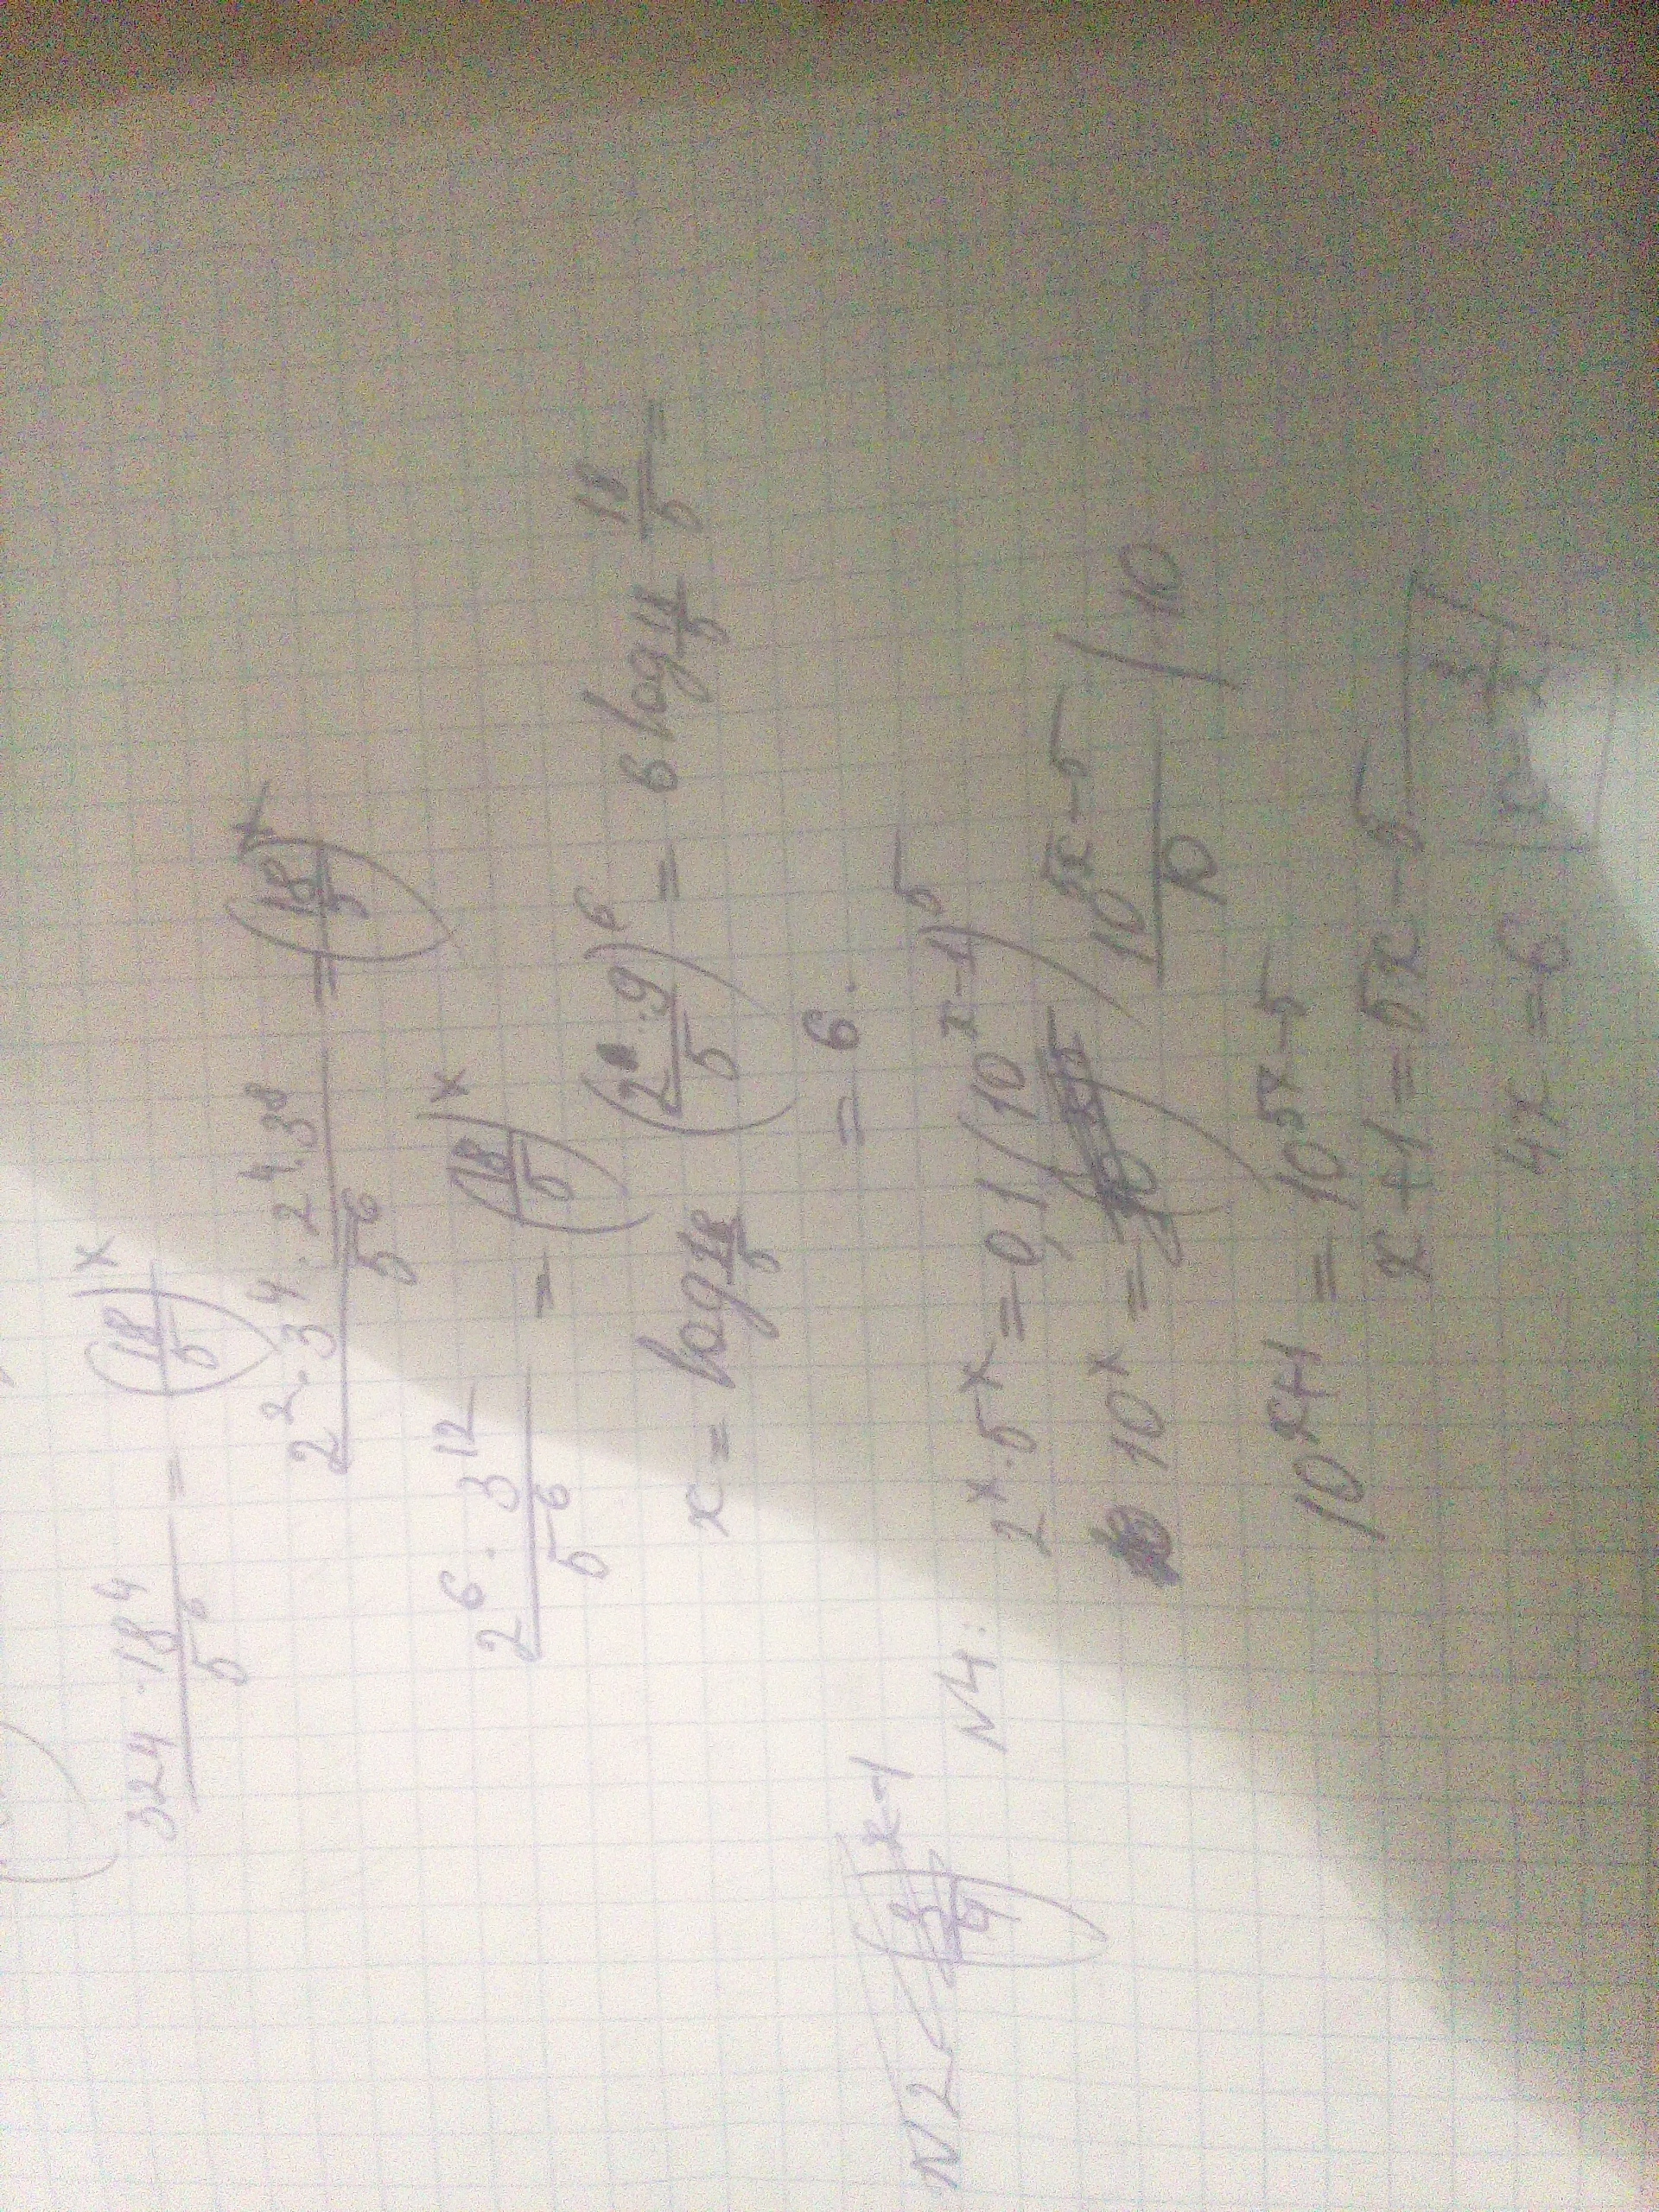 324 · 18⁴ / 5⁶ = (18/5)ˣ
2² · 3⁴ · 2⁴ · 3⁸ / 5⁶ = (18/5)ˣ
2⁶ · 3¹² / 5⁶ = (18/5)ˣ
x = log 18/5 (2 · 9 / 5)⁶ = 6 log 18/5 18/5 =
= 6.
N2
N4: 2ˣ · 5ˣ = 0,1 (10ˣ⁻¹)⁵
10ˣ = 10⁵ˣ⁻⁵ / 10 | · 10
10ˣ⁺¹ = 10⁵ˣ⁻⁵
x + 1 = 5x - 5
4x = 6 x = 3/2